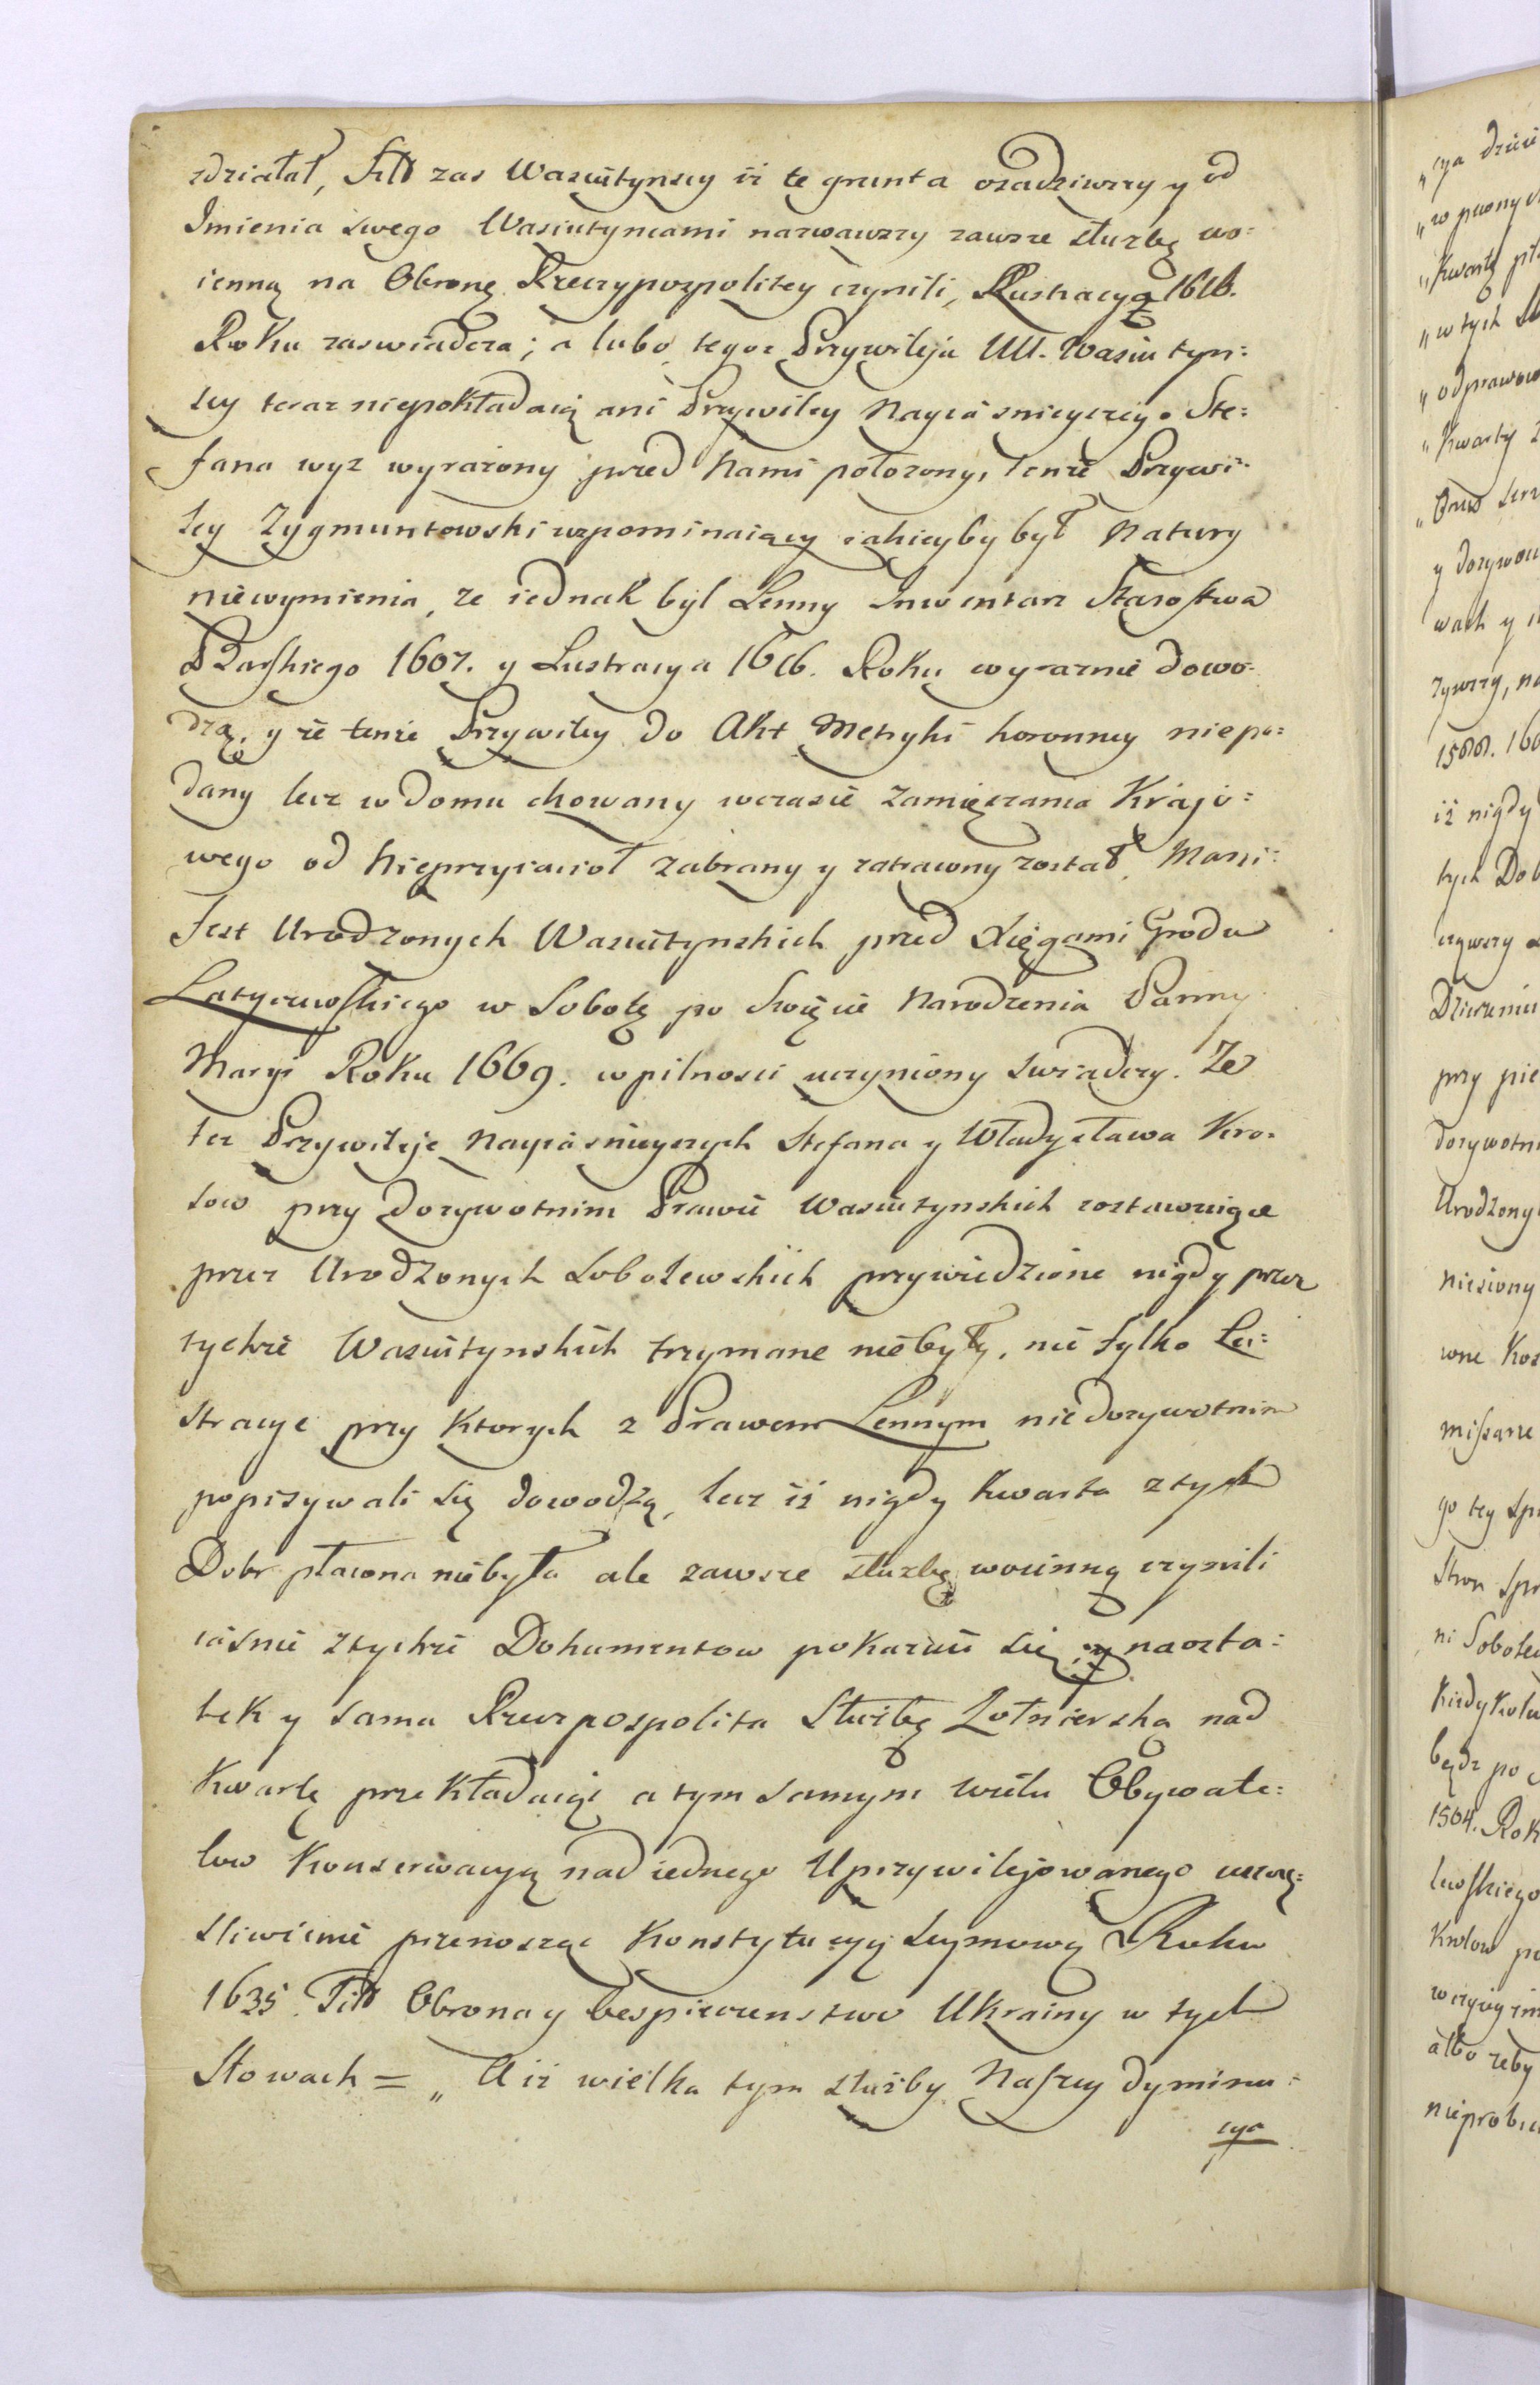 zdziałał, zas Wasiutynscy iż te grunta osadziwszy y od
Imienia swego Wasiutyncami nazwawszy zawsze służbę wo:
ienną na Obronę Rzeczypospolitey czynili, Lustracya 1616.
Roku zaswiadcza; a lubo tegoż Przywileju UU. Wasiutyn:
scy teraz niepokładaią ani Przywiley Nayiasnieyszego Ste:
fana wyz wyrażony przed Nami położony, tenże Przywi:
ley Zygmuntowski wzpominaiący iakieyby był Natury
niewymienia, ze iednak był Lenny Inwentarz Starostwa
Barskiego 1607. y Lustracya 1616. Roku wyraznie dowo:
dzą, y że tenże Przywiley do Akt Metryki koronney niepo:
dany lecz w domu chowany wczasie Zamięszania Krajo:
wego od Nieprzyiacioł zabrany y zatracony został, Mani:
fest Urodzonych Wasiutynskich przed Xięgami Grodu
Latyczewskiego w Sobotę po Swięcie Narodzenia Panny
Maryi Roku 1669. w pilnosci uczyniony swiadczy. Ze
też Przywileje Nayiasnieyszych Stefana y Władysława Kro:
low przy Dożywotnim Prawie Wasiutynskich zostawuiące
przez Urodzonych Sobolewskich przywiedzione nigdy przez
tychże Wasiutynskich trzymane niebyły, nie tylko Lu:
stracye przy ktorych z Prawem Lennym nie Dożywotnim
popisywali się dowodzą, lecz iż nigdy kwarta z tych
Dobr płacona niebyła ale zawsze służbę woienną czynili
iasnie z tychże Dokumentow pokazuie się, y naosta:
tek y sama Rzeczpospolita Służbę Żołnierską nad
Kwartę przekładaiąc a tym samym wielu Obywate:
low Konserwacyą nad iednego Uprzywilejowanego
przenosząc Konstytucyą Seymową Roku
1635 Obrona y bespieczenstwo Ukrainy w tych
Słowach = „ A iż wielka tym służby Naszey dyminu:
cya